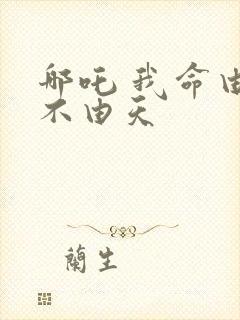 哪吒我命由
不由天
蘭生